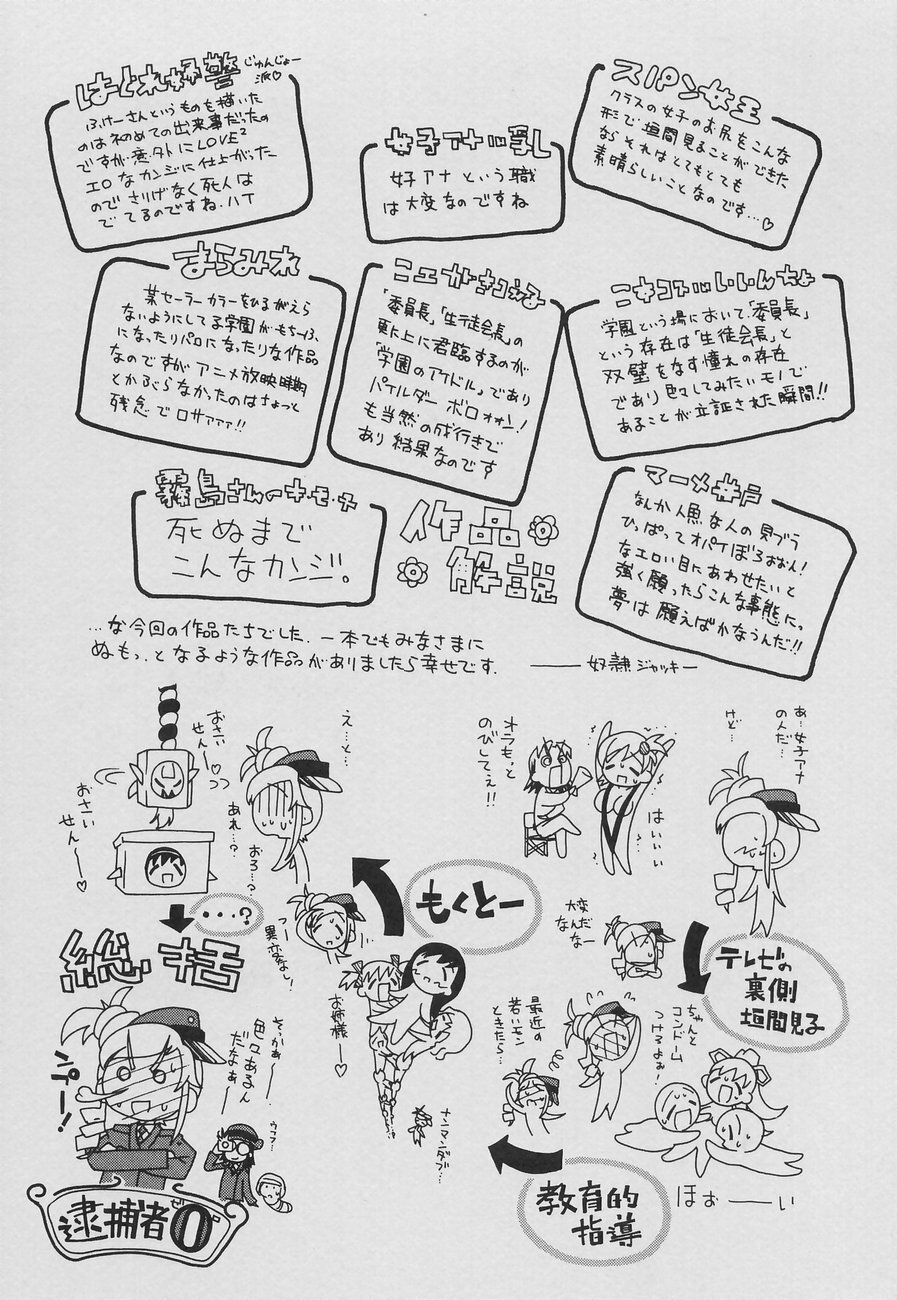 はぐれ好警
じゅんじょー
派♡
ふけーさんというものを描いた
のは初めての出来事だったの
ですが意外にLOVE²
エロなカンジに仕上がった
のでさりげなく死人は
でてるのですね.ハイ
女子アナル乳し
女子アナという職
は大変なのですね
スパン女王
クラスの女子のお尻をこんな
形で垣間見ることができた
ならそれはとてもとても
素晴らしいことなのです…♡
まらみれ
某セーラーカラーをひるがえら
ないようにしてる学園がもちーふ
になったりパロになったりな作品
なのですがアニメ放映時期
とかぶらなかったのはちょっと
残念でロサァァァ!!
コエがきこえる
「委員長」「生徒会長」の
更に上に君臨するのが
「学園のアイドル」であり
パイルダー ボロォォン!
も当然の成行きで
あり結果なのです
いいんちょ
学園という場において「委員長」
という存在は「生徒会長」と
双璧をなす憧れの存在
であり色々してみたいモノで
あることが立証された瞬間!!
霧島さんのキ・モ・チ
死ぬまで
こんなカンジ。
作品
解説
マーメ井戸
なんか人魚な人の貝ブラ
ひっぱってオパイぼろおおん!
なエロい目にあわせたいと
強く願ったらこんな事態に。
夢は願えばかなうんだ!!
…な今回の作品たちでした.一本でもみなさまに
ぬもっ.となるような作品がありましたら幸せです.
――奴隷ジャッキー
あ…女子アナ
のんだ…
けど…
オラもっと
のびしてぇ!!
はいいいい
え…と…
あれ…?
おろ…?
おさい
せんー♡
おさい
せんー♡
テレビの
裏側
垣間見子
大変だ
なんなー
ちゃんと
コンドーム
つけるよぉ!
ほぉ――い
教育的
指導
最近の
若いモン
ときたら…
もくとー
っー異変なし!
お姉様ー♡
ナンマンダブ…
…?
総括
そっかぁー.
色々あるん
だなぁー
ウフフ…
ハァー!
逮捕者ゼロ0